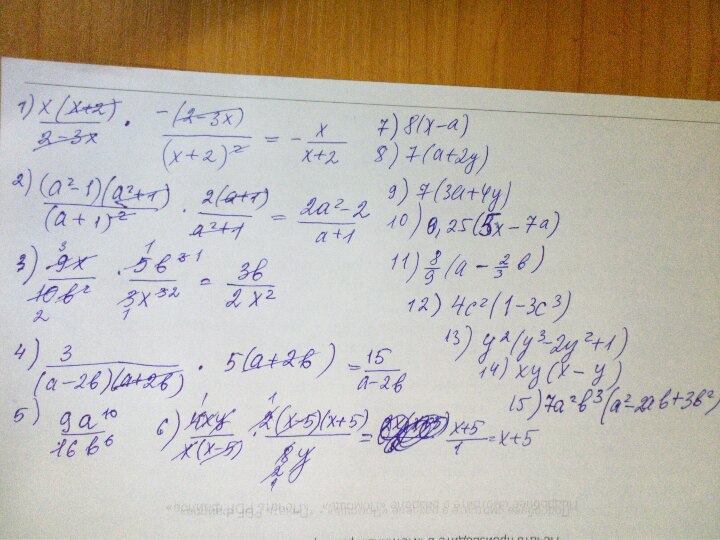 1) x(x+2)/2-3x · -(2-3x)/(x+2)² = - x/x+2
2) (a²-1)(a²+1)/(a+1)² · 2(a+1)/a²+1 = 2a²-2/a+1
3) 9x/10b² · 5b³/3x³ = 3b/2x²
4) 3/(a-2b)(a+2b) · 5(a+2b) = 15/a-2b
5) 9a¹⁰/16b⁶
6) 4xy/x(x-5) · 2(x-5)(x+5)/8y = x+5/1 = x+5
7) 8(x-a)
8) 7(a+2y)
9) 7(3a+4y)
10) 0,25(5x-7a)
11) 8/9(a - 2/3 b)
12) 4c²(1-3c³)
13) y²(y³-2y²+1)
14) xy(x-y)
15) 7a²b³(a²-2ab+3b²)